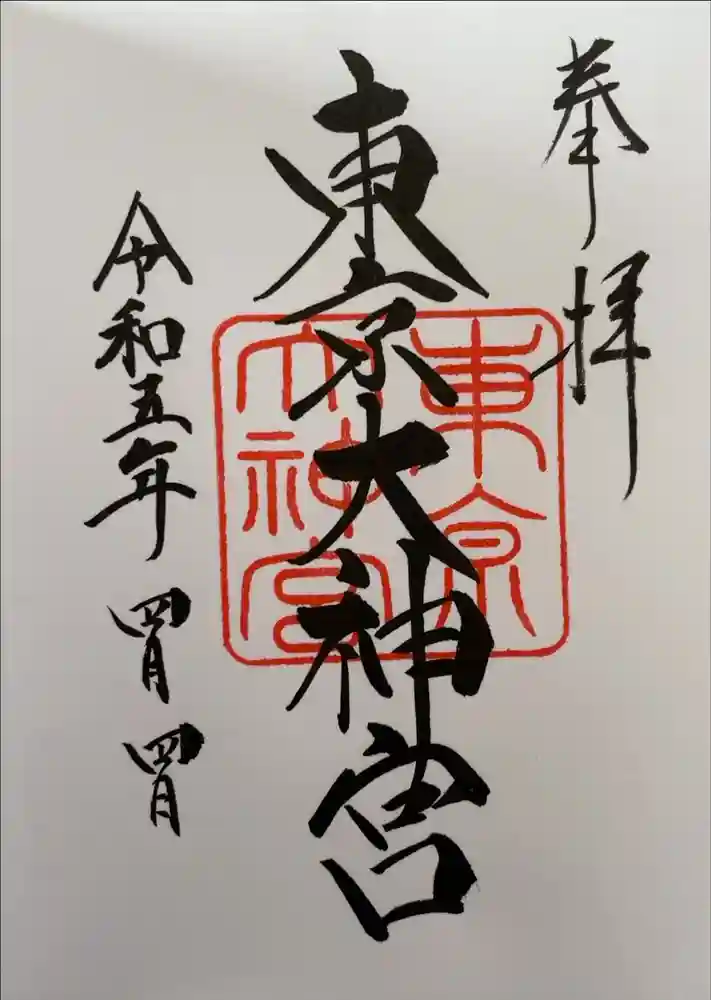 奉拝
東京大神宮
東京
大神宮
令和五年四月四日